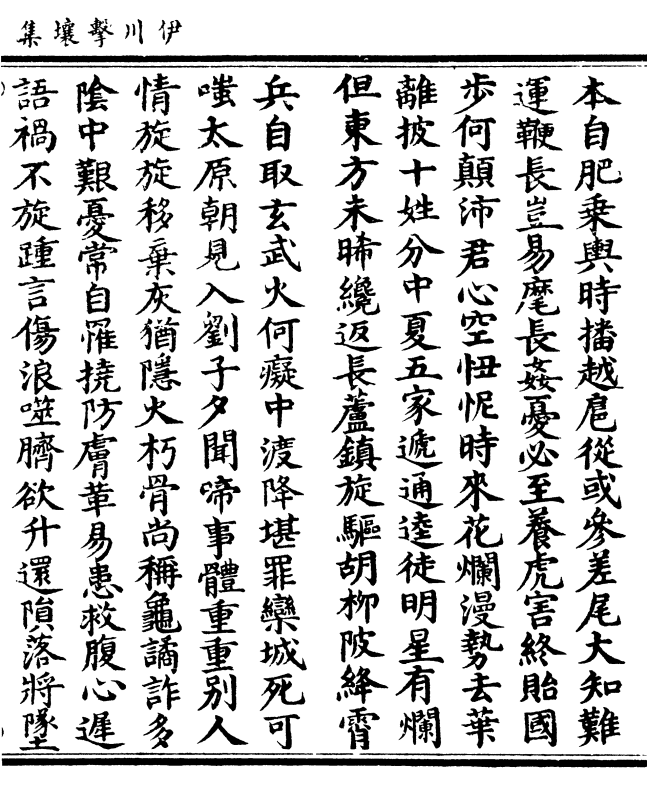 伊川擊壤集
本自肥乗輿時播越扈從或參差尾大知難
運鞭長豈易麾長姦憂必至養虎害終貽國
步何顛沛君心空忸怩時來花爛漫勢去葉
離披十姓分中夏五家遞通逵徒明星有爛
但東方未晞纔返長蘆鎮旋驅胡柳陂絳霄
兵自取玄武火何癡中渡降堪罪欒城死可
嗤太原朝見入劉子夕聞啼事體重重別人
情旋旋移棄灰猶隱火朽骨尚稱龜譎詐多
陰中艱憂常自罹撓防膚革易患救腹心遲
語禍不旋踵言傷浪噬臍欲升還隕落將墜